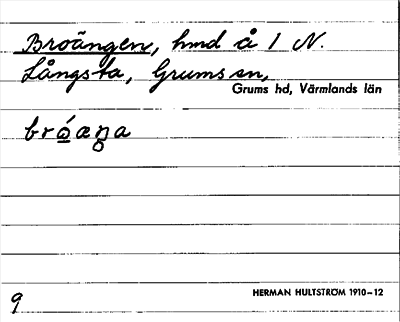 Broängen, hmd å 1 N.
Långsta, Grums sn,
Grums hd, Värmlands län
HERMAN HULTSTRÖM 1910–12
9